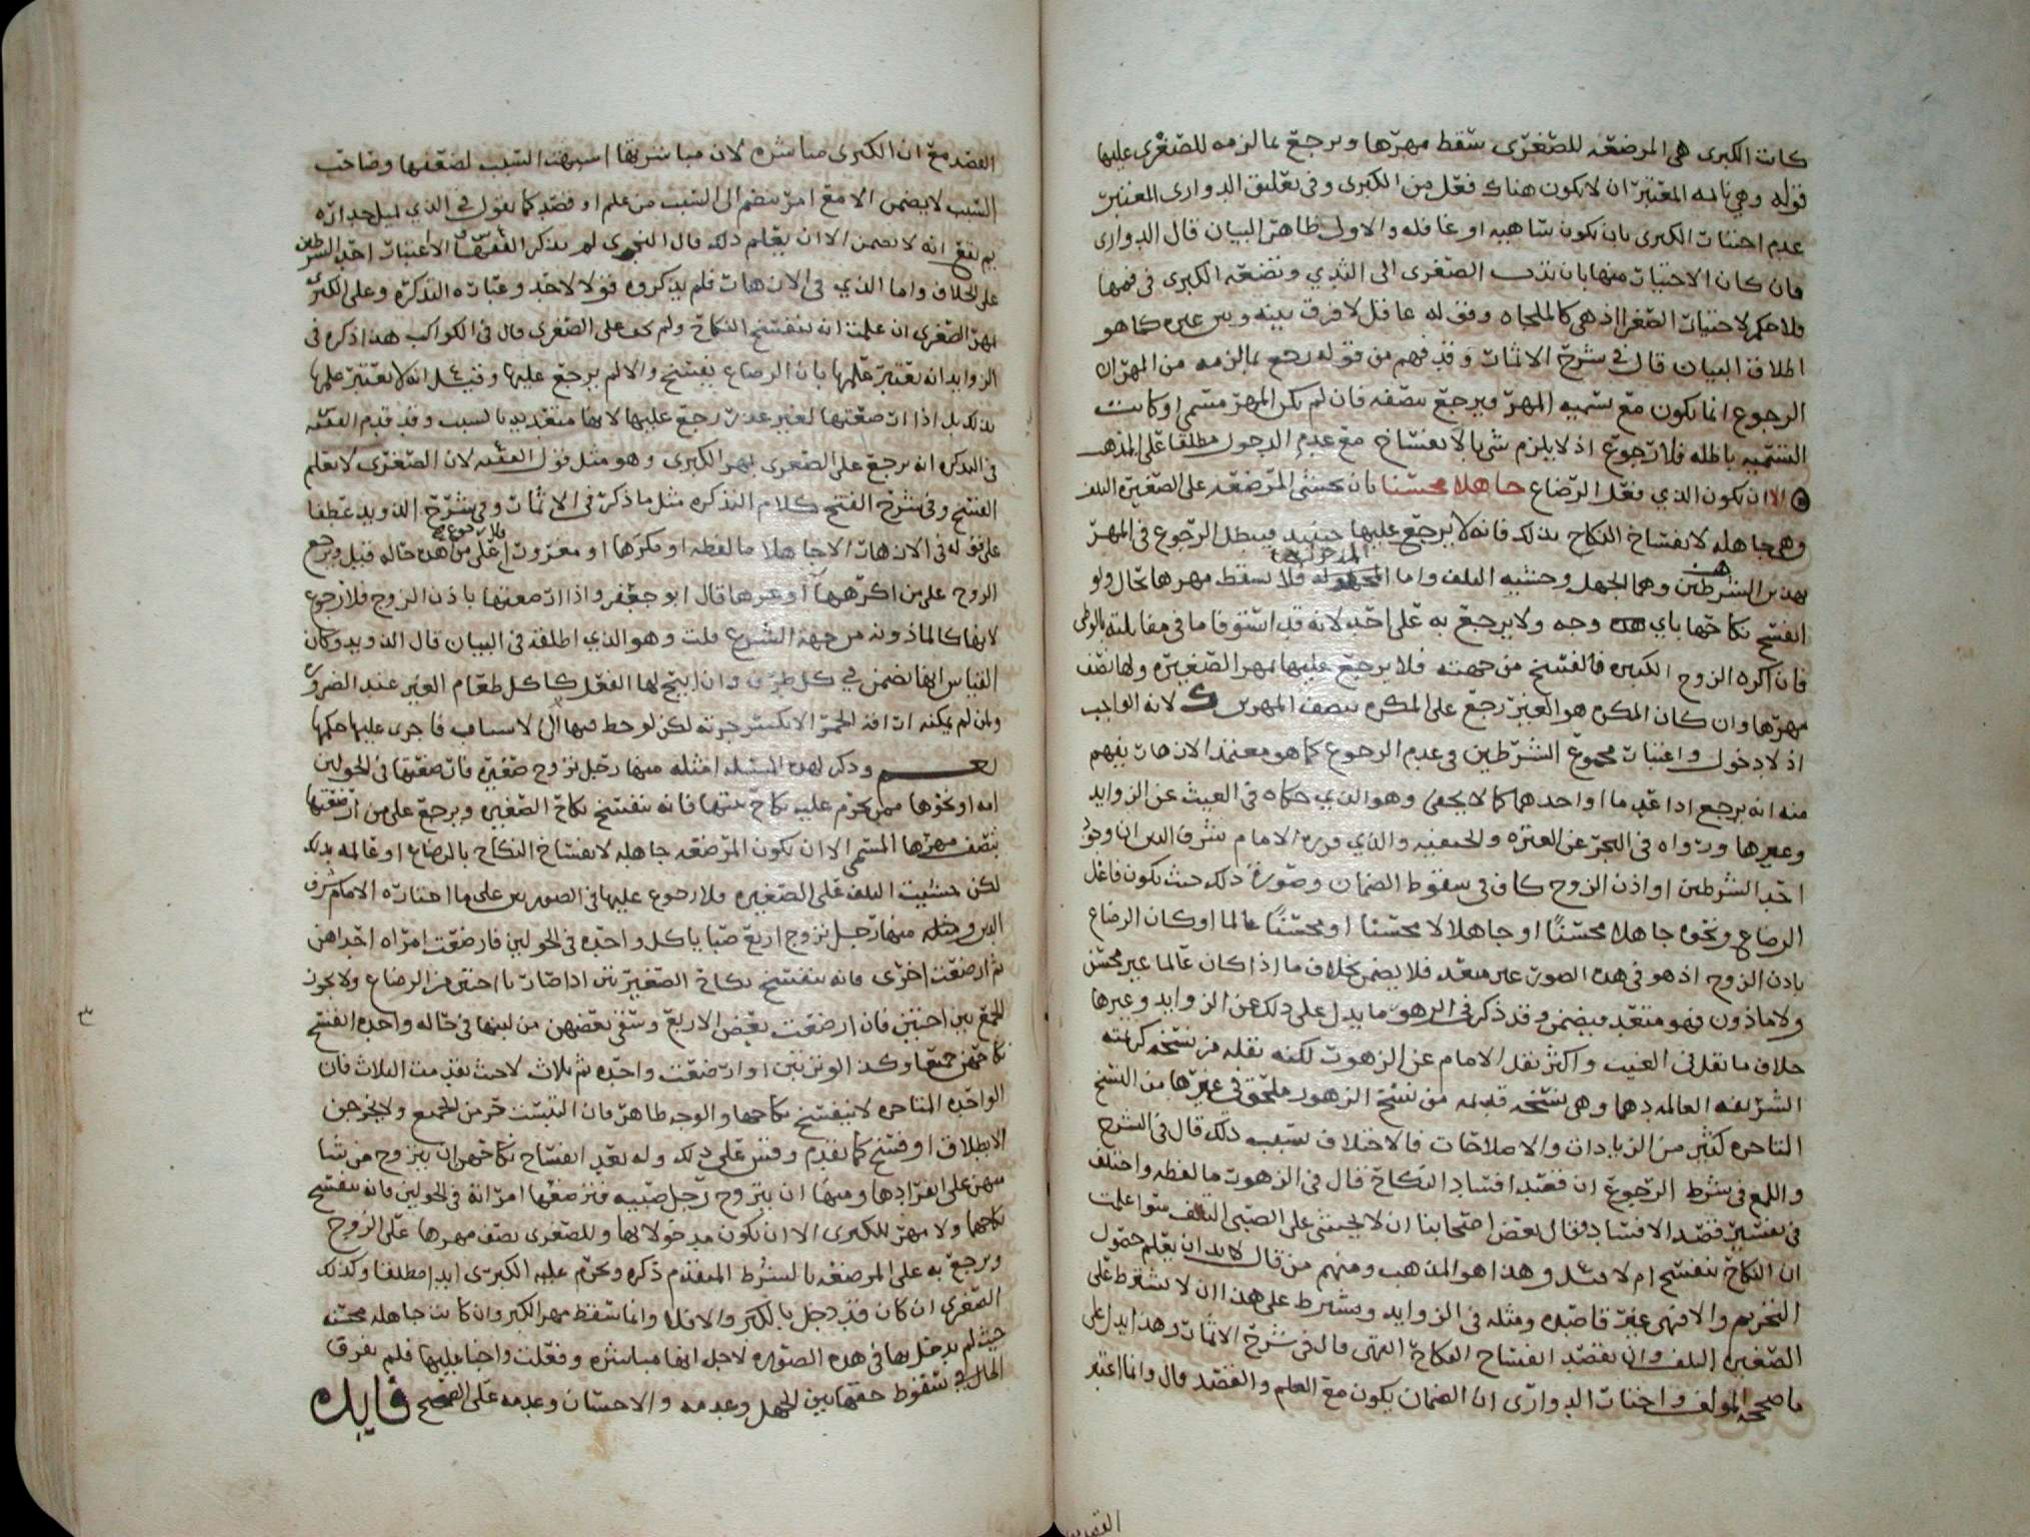 كانت الكبرى هي المرضعه للصغرى سقط مهرها ويرجع بما لزمه للصغرى عليها
قوله وهي نائمه المعتبر ان لا يكون هناك فعل من الكبرى وفي تعليق الدوارى المعتبر
عدم اختيار الكبرى بان يكون ساهيه او غافله والاولى ظاهر البيان قال الدوارى
فان كان الاختيار منها بان تدب الصغرى الى الثدي وتضعه الكبرى في فمها
فلا حكم لاختيار الصغرى اذ هي كالملجاه وقوله غافل لا فرق بينه وبين غيره كما هو
اطلاق البيان قال في شرح الاثمار وقد فهم من قوله رجع بما لزمه من المهر ان
الرجوع انما يكون مع تسميه المهر ويرجع بنصفه فان لم يكن المهر مسمى او كانت
التسميه باطله فلا رجوع اذ لا يلزم شي بالانفساخ مع عدم الدخول مطلقا على المذهب
الا ان يكون الذي فعل الرضاع جاهلا محسنا بان تخشى المرضعه على الصغيره التلف
وهي جاهله لانفساخ النكاح بذلك فانه لا يرجع عليها حينيد فيبطل الرجوع في المهر
بهذين الشرطين وهما الجهل وخشيه التلف واما المدخوله فلا يسقط مهرها بحال ولو
انفسخ نكاحها باي وجه ولا يرجع به على احد لانه قد استوفا ما في مقابلته بالوطي
فان اكره الزوج الكبيره فالفسخ من جهته فلا يرجع عليها بمهر الصغيره ولها نصف
مهرها وان كان المكره هو الغير رجع على المكره بنصف المهرين لانه الواجب
اذ لا دخول واعتبار مجموع الشرطين في عدم الرجوع كما هو معتمد الازهار يفهم
منه انه يرجع اذا عدما او احدهما كما لا يخفى وهو الذي حكاه في الغيث عن الزوايد
وغيرها ورواه في البحر عن العتره والحنفيه والذي قرره الامام شرف الدين ان وجود
احد الشرطين او اذن الزوج كاف في سقوط الضمان وصورة ذلك حيث يكون فاعل
الرضاع ونحوه جاهلا محسنًا او جاهلا لا محسنا او محسنًا عالما او كان الرضاع
باذن الزوج اذ هو في هذه الصور غير متعد فلا يضمن بخلاف ما اذا كان عالما غير محسن
ولا ماذون فهو متعد فيضمن وقد ذكر في الزهور ما يدل على ذلك عن الزوايد وغيرها
خلاف ما نقل في الغيث واكثر نقل الامام عن الزهور لكنه نقله من نسخه كريمته
الشريفه العالمه دهما وهي نسخه قديمه من نسخ الزهور ملحق في غيرها من النسخ
المتاخره كثير من الزيادات والاصلاحات فالاختلاف بسببه ذلك قال في الشرح
واللمع في شرط الرجوع ان قصد افساد النكاح قال في الزهور ما لفظه واختلف
في تفسير قصد الافساد فقال بعض اصحابنا ان لا تخشى على الصبي التلف سوا علمت
ان النكاح ينفسخ ام لا وهذا هو المذهب ومنهم من قال لا بد ان يعلم حصول
التحريم والا فهى غير قاصده ومثله في الزوايد ويشترط على هذا ان لا يشترط على
الصغير التلف وان يقصد انفساخ النكاح انتهى قال في شرح الاثمار وهذا يدل على
ما صححه المولف واختار الدوارى ان الضمان يكون مع العلم والقصد قال وانما اعتبر
القصد مع ان الكبرى مباشره لان مباشرتها اشبهت السبب لضعفها وصاحب
السبب لا يضمن الا مع امر ينضم الى السبب من علم او قصد كما نقول في الذي يميل جداره
ثم يقع انه لا يضمن الا ان يعلم ذلك قال النجري لم يذكر الفقيه س الاعتبار احد الشرطين
على الخلاف واما الذي في الازهار فلم يذكروه قولا لاحد وعبارة التذكره وعلى الكبرى
مهر الصغرى ان علمت انه ينفسخ النكاح ولم تخف على الصغرى قال في الكواكب هذا ذكره في
الزوايد انه يعتبر علمها بان الرضاع يفسخ والا لم يرجع عليها وقيل انه لا يعتبر علمها
بذلك بل اذا ارضعتها لغير عذر رجع عليها لانها متعديه بالسبب وقد قدم الفقيه
في التذكره انه يرجع على الصغرى بمهر الكبرى وهو مثل قول الفقيه لان الصغرى لا تعلم
الفسخ وفي شرح الفتح كلام التذكره مثل ما ذكر في الاثمار وفي شرح الذويد عطفا
على قوله في الازهار الا جاهلا ما لفظه او مكرها او معزورا فلا رجوع على من هذه حاله قيل ويرجع
الزوج على من اكرهها او غرها قال ابو جعفر واذا ارضعتها باذن الزوج فلا رجوع
لانها كالماذونه من جهة الشرع قلت وهو الذي اطلقه في البيان قال الذويد وكان
القياس انها تضمن في كل طرف وان ابيح لها الفعل كاكل طعام الغير عند الضرورة
ولمن لم يمكنه اراقة الخمر الا بكسر جرته لكن لوحظ فيها الى الاسباب فاجرى عليها حكمها
نعم وذكر لهذه المسئله امثله منها رجل تزوج صغيره فارضعتها في الحولين
امه او نحوها ممن يحرم عليه نكاح بنتها فانه ينفسخ نكاح الصغيره ويرجع على من ارضعتها
بنصف مهرها المسمى الا ان تكون المرضعه جاهله لانفساخ النكاح بالرضاع او عالمه بذلك
لكن خشيت التلف على الصغيره فلا رجوع عليها في الصورتين على ما اختاره الامام شرف
الدين ومثله منها رجل تزوج اربع صبايا كل واحده في الحولين فارضعت امراه احداهن
ثم ارضعت اخرى فانه ينفسخ نكاح الصغيرتين اذا صارتا اختين من الرضاع ولا يجوز
الجمع بين اختين فان ارضعت بعض الاربع وسقى بعضهن من لبنها في حاله واحده انفسخ
نكاحهن جميعا وكذا لو ثنتين او ارضعت واحده ثم ثلاث لا حيث تقدمت الثلاث فان
الواحده المتاخره لا ينفسخ نكاحها والوجه ظاهر فان التبست حرمن الجميع ولا يخرجن
الا بطلاق او فسخ كما تقدم وقس على ذلك وله بعد انفساخ نكاحهن ان يتزوج من شا
منهن على انفرادها ومنها ان يتزوج رجل صبيه فترضعها امراته في الحولين فانه ينفسخ
نكاحهما ولا مهر للكبرى الا ان تكون مدخولا بها وللصغرى نصف مهرها على الزوج
ويرجع به على المرضعه بالشرط المتقدم ذكره وتحرم عليه الكبرى ابدا مطلقا وكذلك
الصغرى ان كان قد دخل بالكبرى والا فلا وانما سقط مهر الكبرى وان كانت جاهله محسنه
حيث لم يدخل بها في هذه الصوره لاجل انها مباشره وفعلت واجبا عليها فلم يفرق
الحال في سقوط حقها بين الجهل وعدمه والاحسان وعدمه على الصحيح فايده